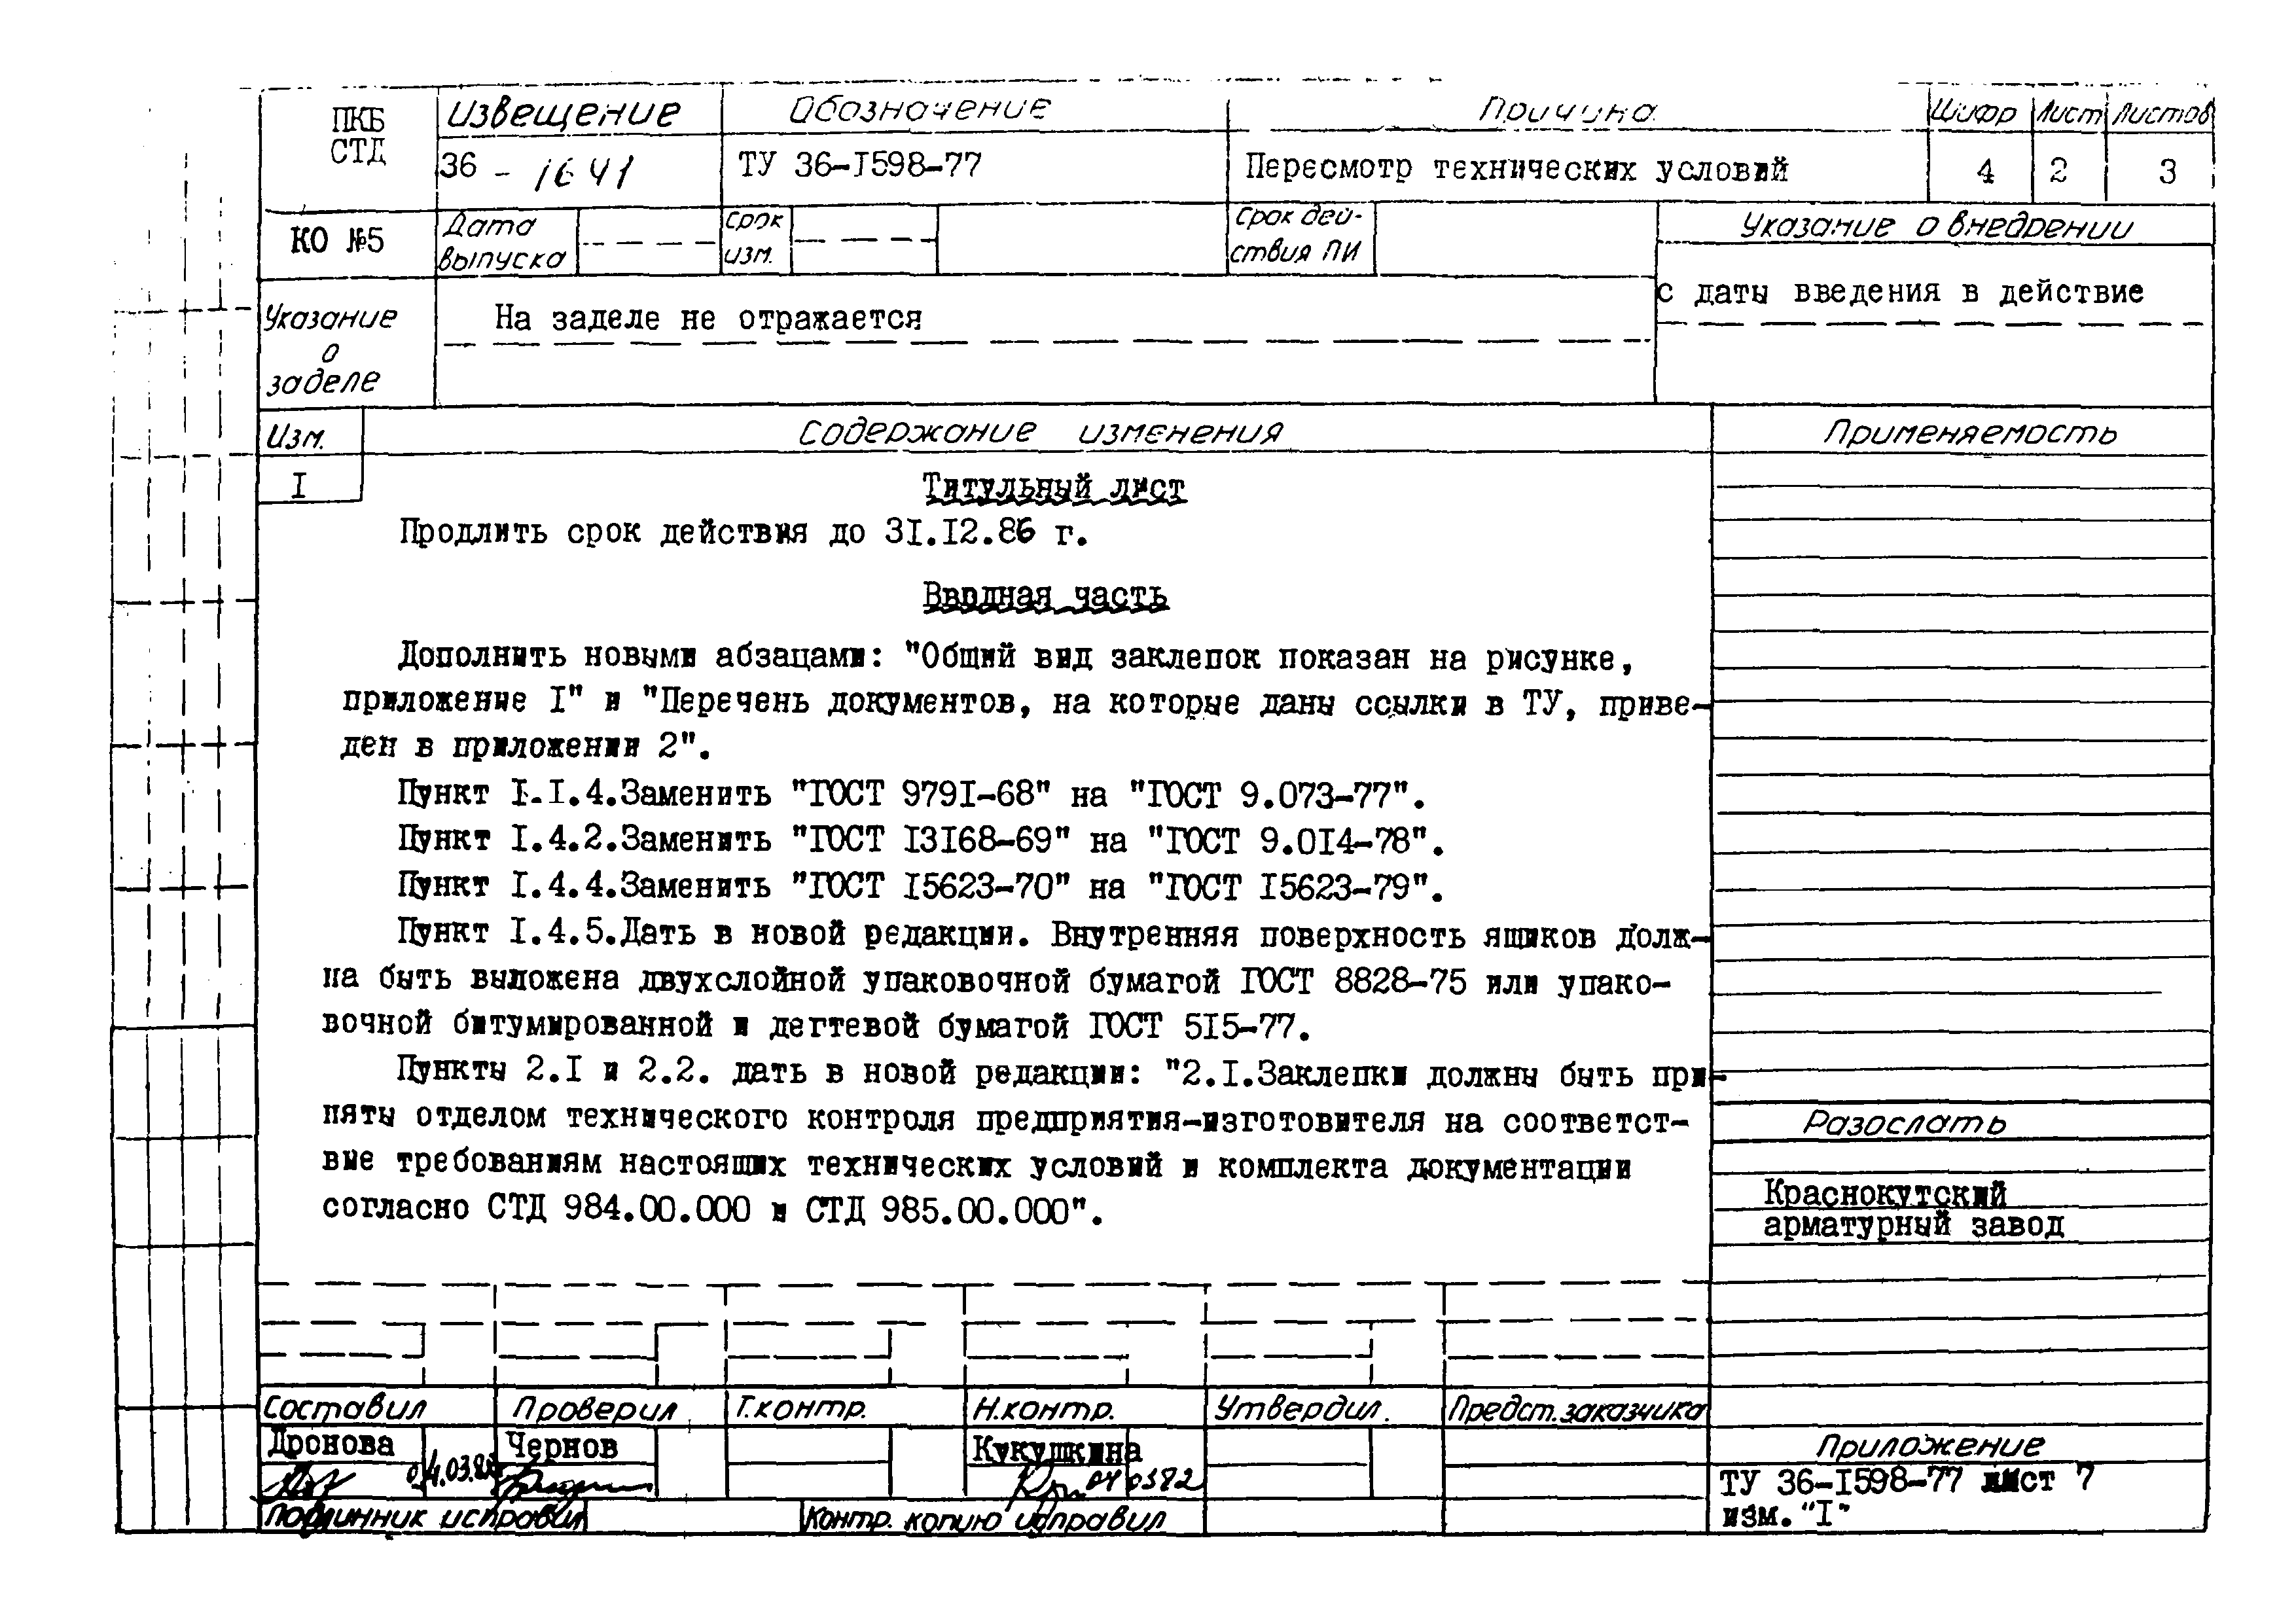 ПКБ СТД Извещение Обозначение Причина Шифр Лист Листов
36 - 1641 ТУ 36-I598-77 Пересмотр технических условий 4 2 3
КО №5 Дата выпуска Срок изм. Срок действия ПИ Указание о внедрении
с даты введения в действие
Указание о заделе На заделе не отражается
Изм. Содержание изменения Применяемость
I Титульный лист
Продлить срок действия до 3I.I2.86 г.
Вводная часть
Дополнить новыми абзацами: "Общий вид заклепок показан на рисунке,
приложение I" и "Перечень документов, на которые даны ссылки в ТУ, приве-
ден в приложении 2".
Пункт I.I.4.Заменить "ГОСТ 979I-68" на "ГОСТ 9.073-77".
Пункт I.4.2.Заменить "ГОСТ I3I68-69" на "ГОСТ 9.0I4-78".
Пункт I.4.4.Заменить "ГОСТ I5623-70" на "ГОСТ I5623-79".
Пункт I.4.5.Дать в новой редакции. Внутренняя поверхность ящиков долж-
на быть выложена двухслойной упаковочной бумагой ГОСТ 8828-75 или упако-
вочной битумированной и дегтевой бумагой ГОСТ 5I5-77.
Пункты 2.I и 2.2. дать в новой редакции: "2.I.Заклепки должны быть при-
няты отделом технического контроля предприятия-изготовителя на соответст-
вие требованиям настоящих технических условий и комплекта документации
согласно СТД 984.00.000 и СТД 985.00.000".
Разослать
Краснокутский
арматурный завод
Составил Проверил Т.контр. Н.контр. Утвердил. Предст.заказчика
Дронова Чернов Кукушкина
04.03.82 04 03 82
Подлинник исправил Контр. копию исправил
Приложение
ТУ 36-I598-77 лист 7
изм."I"